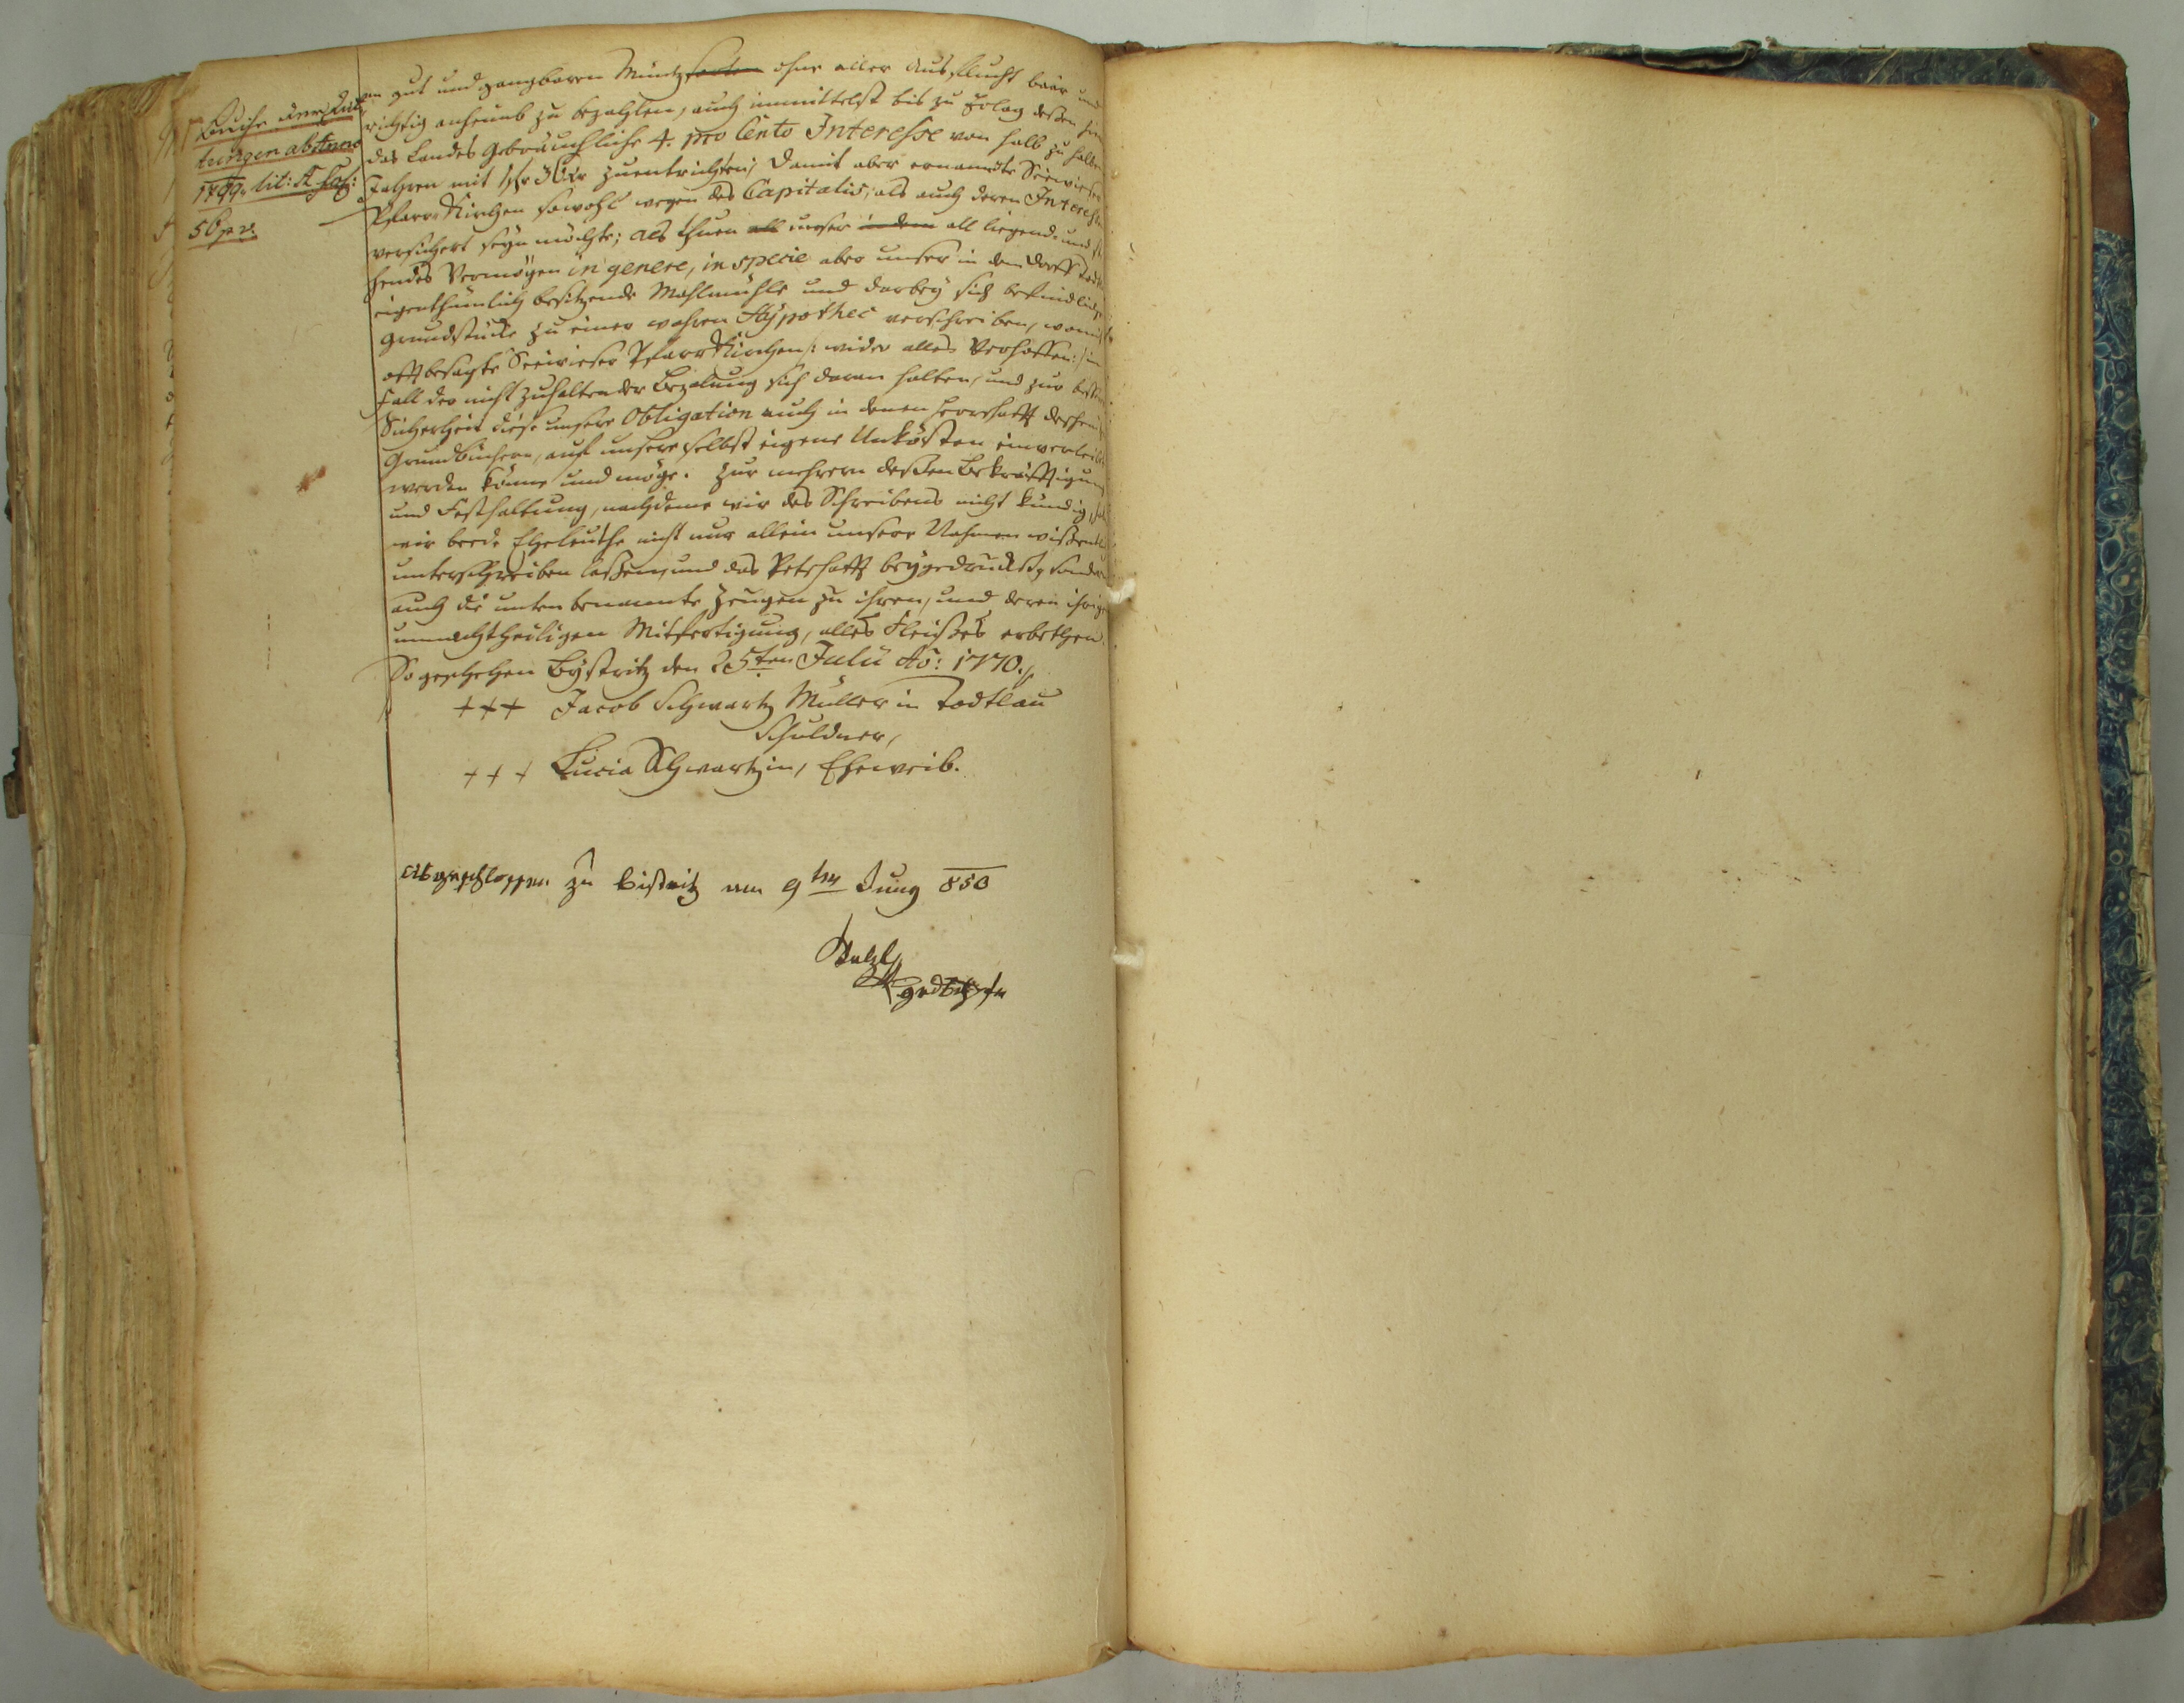 tungen ab Anno
1799. lit: A fol:
56 p. v.
gut und gangbaren Müntz sorten ohne aller Ausflucht baar und
richtig anheimb zu bezahlen, auch immittelst bis zu Erlag dessen
das Landes gebräuchliche 4. pro Cento Interesse von halb zu halben
Jahren mit 1 fl 36 Xr zuentrichten; Damit aber ernannte Seewieser
Pfarr Kirchen sowohl wegen des Capitalis, als auch deren Interessen
versichert seyn möchte; als thuen all unser in dem all liegend- und
hendes Vermögen in genere, in specie aber unser in dem Dorff
eigenthümlich besitzende Mahlmühle und darbey sich befindliche
Grundstücke zu einer wahren Hypothec verschreiben, womit
offtbesagte Seewieser Pfarr Kirchen /: wider alles Verhoffen :/ im
Fall der nicht zuhaltender Bezalung sich daran halten, und zur
Sicherheit diese unsere Obligation auch in denen herrschafft
Grundbüchern, auf unsere selbst eigene Unkösten einverleibt
werden könne und möge. Zur mehrern dessen Bekräfftigung
und Festhaltung, nachdeme wir des Schreibens nicht kündig,
wir beede Eheleuthe nicht nur allein unsere Nahmen wissentlich
unterschreiben lassen, und das Petschafft beygedruckt, sondern
auch die unten benannte Zeugen zu ihren, und deren ihrigen
unnachtheiligen Mitfertigung, alles Fleisses erbethen.
So geschehen Bystritz den 25ten Julii Ao: 1770.
+++ Jacob Schwartz Müller in Todtlau
Schuldner,
+++ Lucia Schwartzin, Eheweib.
Abgeschlossen zu Bistritz am 9ten Juny 850